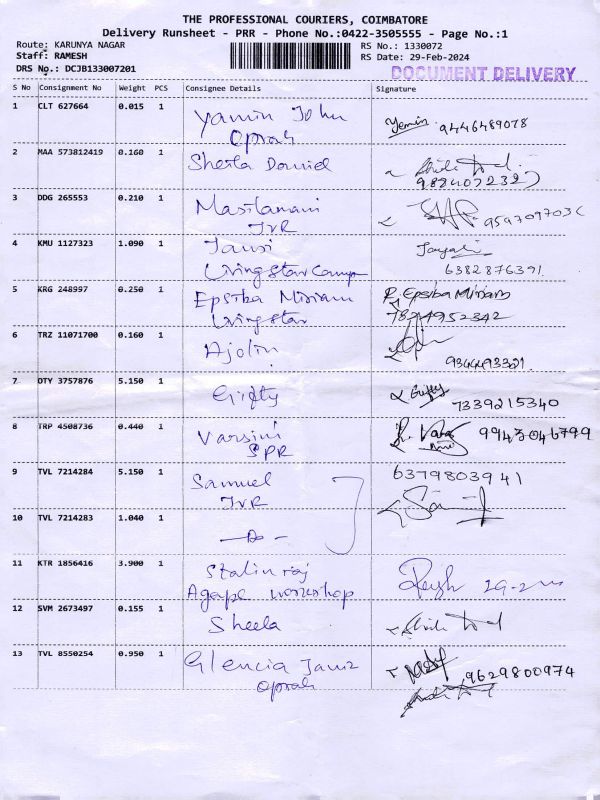 THE PROFESSIONAL COURIERS, COIMBATORE
Delivery Runsheet - PRR - Phone No.:0422-3505555 - Page No.:1
Route: KARUNYA NAGAR
Staff: RAMESH
DRS No.: DCJB133007201
RS No.: 1330072
RS Date: 29-Feb-2024
DOCUMENT DELIVERY
S No Consignment No Weight PCS Consignee Details Signature
1 CLT 627664 0.015 1 Yamin John
Oprah
Yemin 9446489078
2 MAA 573812419 0.160 1 Sheila Daniel
3 DDG 265553 0.210 1 Masilamani
JVR
4 KMU 1127323 1.090 1 Jansi
Livingstar Camp
6382876391
5 KRG 248997 0.250 1 Epsiba Miriam
Livingstar
R Epsiba Miriam
7894952342
6 TRZ 11071700 0.160 1 Ajolin
7 OTY 3757876 5.150 1 Gifty
Gifty
7339215340
8 TRP 4508736 0.440 1 Varsini
SPR
9943046799
9 TVL 7214284 5.150 1 Samuel
JVR
6379803941
10 TVL 7214283 1.040 1 -Do-
11 KTR 1856416 3.900 1 Stalin raj
Agape workshop
12 SVM 2673497 0.155 1 Sheela
13 TVL 8550254 0.950 1 Glencia Janz
Oprah
9629800974